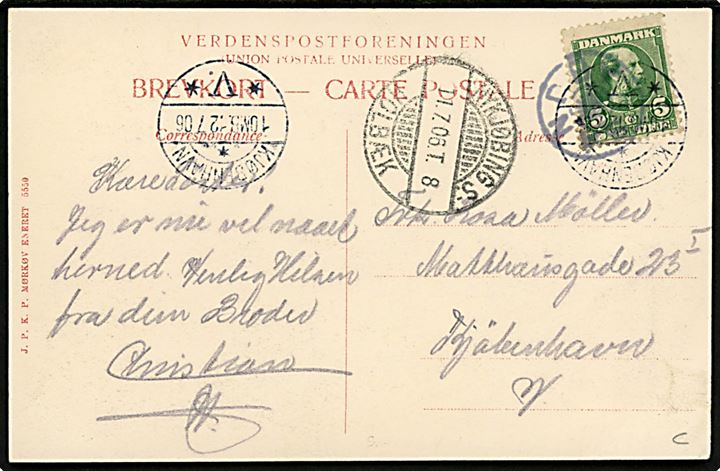 VERDENSPOSTFORENINGEN
(UNION POSTALE UNIVERSELLE)
BREVKORT — CARTE POSTALE
Correspondance
Adresse
DANMARK
5 5
*V.*
10MB. 12.7.06
KJØBENHAVN
NYKJØBING.S.
D1.7.06.T.8
HOLBÆK
KJØBENHAVN
Kære
Jeg er nu vel naaet
herned Venlig Hilsen
fra din Broder
Christian
Frk. Rosa Møller
Matthæusgade 23 I
Kjøbenhavn
V
J. P. K. P. MØRKØV ENERET 5550
C